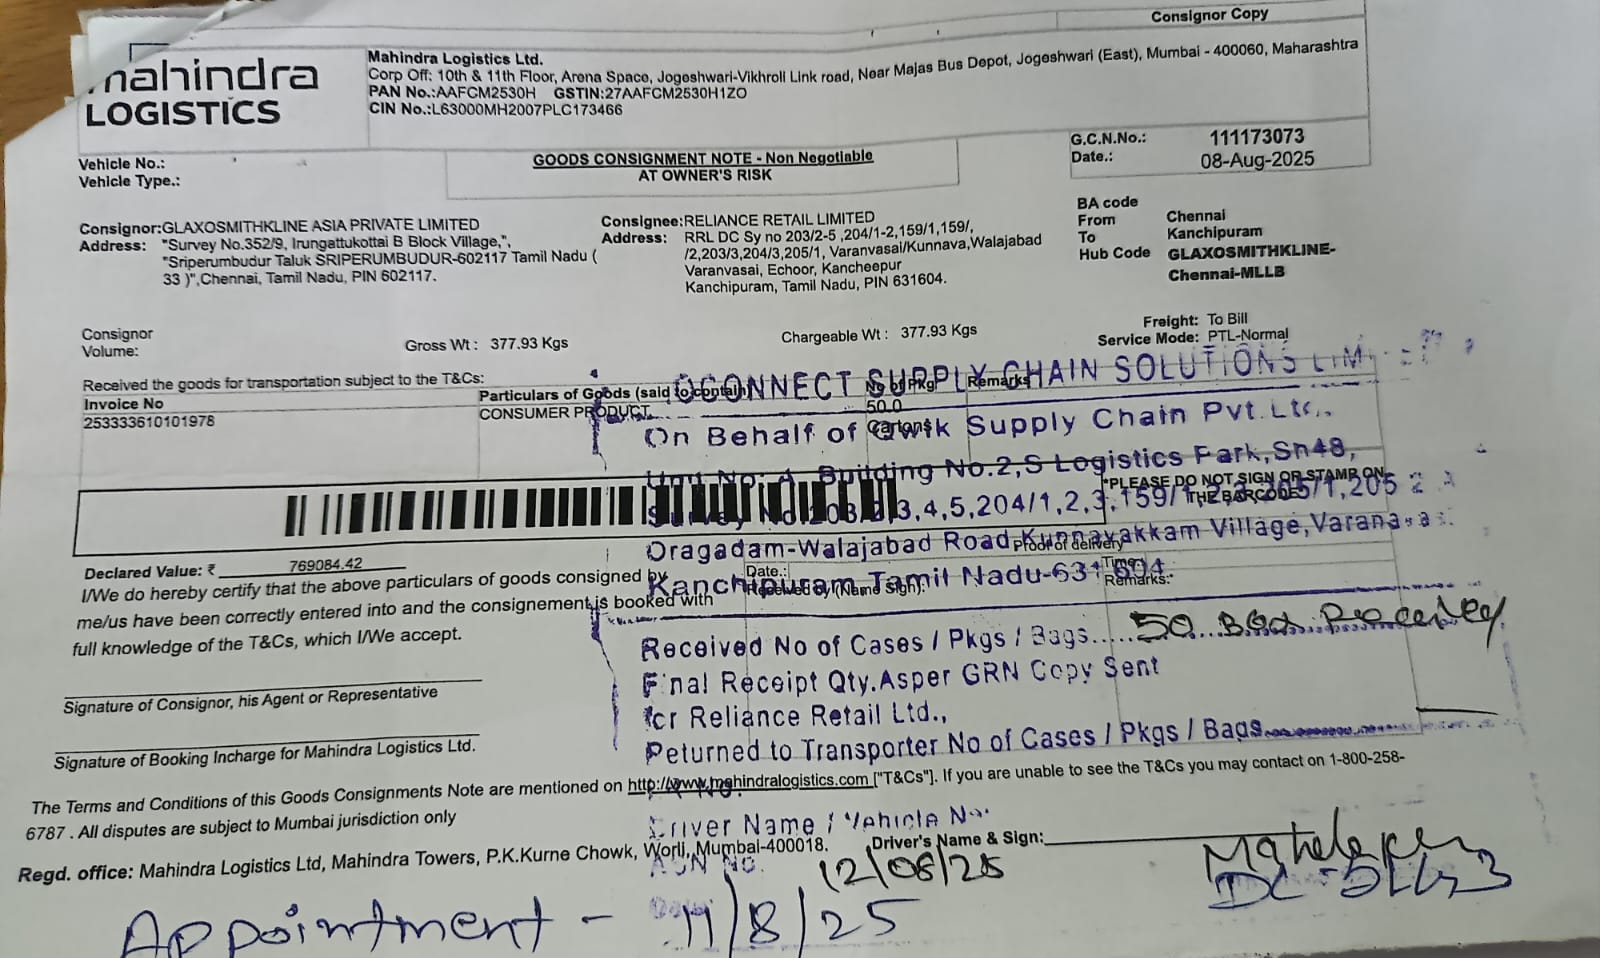 Consignor Copy
mahindra
LOGISTICS
Mahindra Logistics Ltd.
Corp Off: 10th & 11th Floor, Arena Space, Jogeshwari-Vikhroli Link road, Near Majas Bus Depot, Jogeshwari (East), Mumbai - 400060, Maharashtra
PAN No.:AAFCM2530H GSTIN:27AAFCM2530H1ZO
CIN No.:L63000MH2007PLC173466
G.C.N.No.: 111173073
Date.: 08-Aug-2025
Vehicle No.:
Vehicle Type.:
GOODS CONSIGNMENT NOTE - Non Negotiable
AT OWNER'S RISK
Consignor:GLAXOSMITHKLINE ASIA PRIVATE LIMITED
Address: "Survey No.352/9, Irungattukottai B Block Village,",
"Sriperumbudur Taluk SRIPERUMBUDUR-602117 Tamil Nadu (
33 )",Chennai, Tamil Nadu, PIN 602117.
Consignee:RELIANCE RETAIL LIMITED
Address: RRL DC Sy no 203/2-5 ,204/1-2,159/1,159/,
/2,203/3,204/3,205/1, Varanvasal/Kunnava,Walajabad
Varanvasai, Echoor, Kancheepur
Kanchipuram, Tamil Nadu, PIN 631604.
BA code
From Chennai
To Kanchipuram
Hub Code GLAXOSMITHKLINE-
Chennai-MLLB
Consignor
Volume:
Gross Wt : 377.93 Kgs
Chargeable Wt : 377.93 Kgs
Freight: To Bill
Service Mode: PTL-Normal
Received the goods for transportation subject to the T&Cs:
Invoice No
253333610101978
Particulars of Goods (said to contain)
CONSUMER PRODUCT
No of Pkg
50.0
Cartons
Remarks
OCONNECT SUPPLY CHAIN SOLUTIONS
On Behalf of Qwik Supply Chain Pvt. Ltd.,
Building No.2,S Logistics Park,Sn48,
*PLEASE DO NOT SIGN OR STAMP ON
THE BARCODE
3,4,5,204/1,2,3,159/
Oragadam-Walajabad Road Kunnavakkam Village,
Proof of delivery
Kanchipuram Tamil Nadu-631 604
Date.:
Time:
Received by (Name Sign):
Remarks:
Declared Value: ₹ 769084.42
I/We do hereby certify that the above particulars of goods consigned by
me/us have been correctly entered into and the consignement is booked with
full knowledge of the T&Cs, which I/We accept.
Received No of Cases / Pkgs / Bags..... 50
Final Receipt Qty.Asper GRN Copy Sent
for Reliance Retail Ltd.,
Returned to Transporter No of Cases / Pkgs / Bags
Signature of Consignor, his Agent or Representative
Signature of Booking Incharge for Mahindra Logistics Ltd.
The Terms and Conditions of this Goods Consignments Note are mentioned on http://www.mahindralogistics.com ["T&Cs"]. If you are unable to see the T&Cs you may contact on 1-800-258-
6787 . All disputes are subject to Mumbai jurisdiction only
Driver Name / Vehicle No.
Regd. office: Mahindra Logistics Ltd, Mahindra Towers, P.K.Kurne Chowk, Worli, Mumbai-400018.
Driver's Name & Sign:
12/08/25
Appointment - 11/8/25